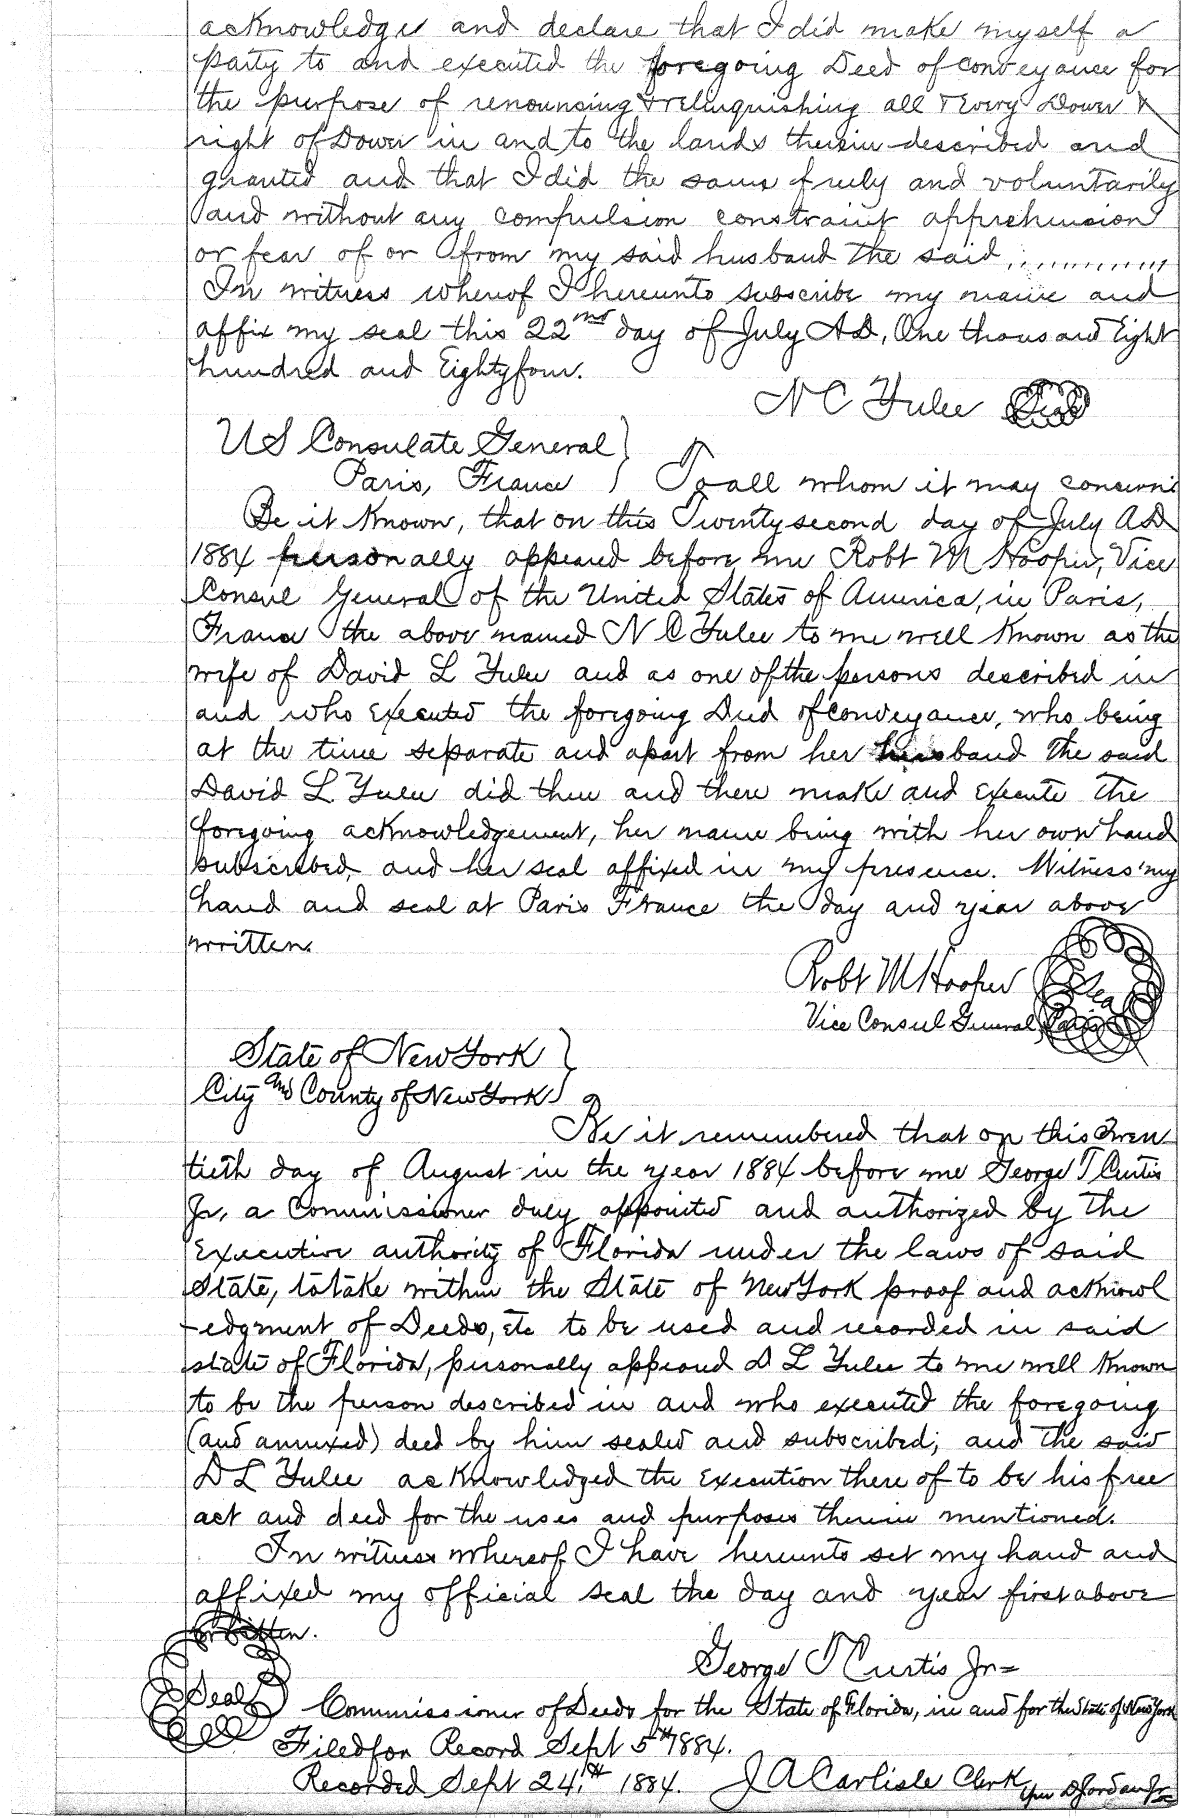 acknowledge and declare that I did make myself a
party to and executed the foregoing Deed of conveyance for
the purpose of renouncing & relinquishing all & Every Dower &
right of Dower in and to the lands therein described and
granted and that I did the same freely and voluntarily
and without any compulsion constraint apprehension
or fear of or from my said husband the said.............
In witness whereof I hereunto subscribe my name and
affix my seal this 22nd day of July AD, One thousand Eight
hundred and Eightyfour.
N C Yulee Seal
US Consulate General }
Paris, France } To all whom it may concern
Be it Known, that on this Twentysecond day of July AD
1884 personally appeared before me Robt M Hooper, Vice
Consul General of the United States of America, in Paris,
France the above named N C Yulee to me well Known as the
wife of David L Yulee and as one of the persons described in
and who Executed the foregoing Deed of conveyance, who being
at the time separate and apart from her husband the said
David L Yulee did then and there make and Execute the
foregoing acknowledgement, her name being with her own hand
subscribed, and her seal affixed in my presence. Witness my
hand and seal at Paris France the day and year above
written.
Robt M Hooper Seal
Vice Consul General, Paris
State of New York }
City and County of New York }
Be it remembered that on this Twen
tieth day of August in the year 1884 before me George T Curtis
Jr, a Commissioner duly appointed and authorized by the
Executive authority of Florida under the laws of said
State, to take within the State of New York proof and acknowl
-edgment of Deeds, etc to be used and recorded in said
state of Florida, personally appeared D L Yulee to me well Known
to be the person described in and who executed the foregoing
(and annexed) deed by him sealed and subscribed; and the said
D L Yulee acknowledged the Execution there of to be his free
act and deed for the uses and purposes therein mentioned.
In witness whereof I have hereunto set my hand and
affixed my official seal the day and year first above
written.
George T Curtis Jr=
Seal Commissioner of Deeds for the State of Florida, in and for the State of New York
Filed for Record Sept 5th 1884.
Recorded Sept 24th 1884. J A Carlisle Clerk